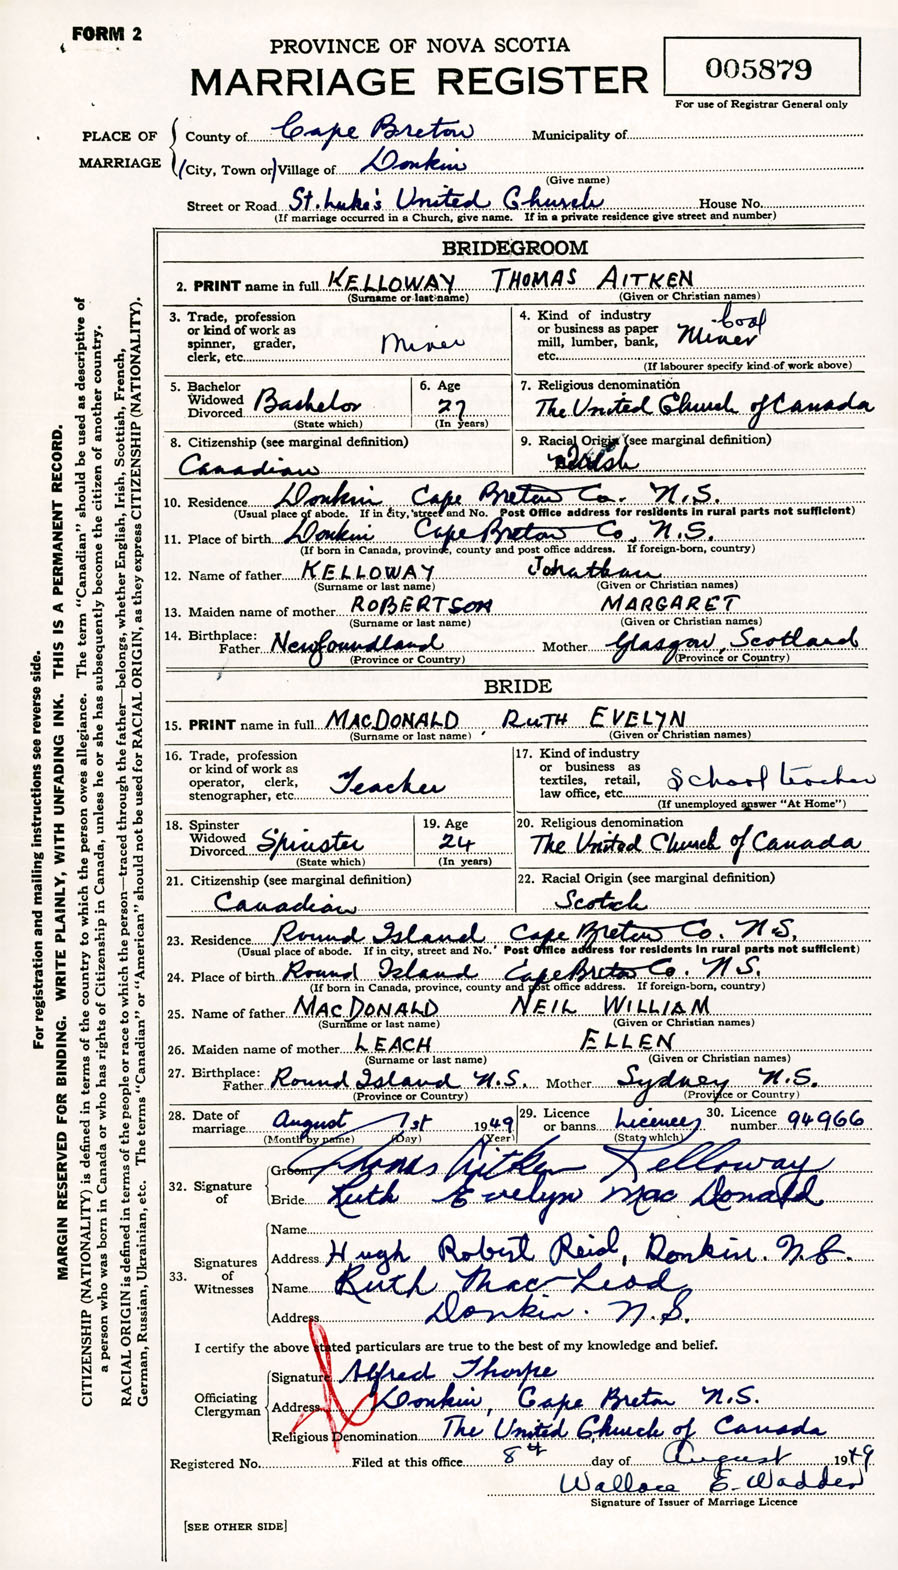 FORM 2
PROVINCE OF NOVA SCOTIA
MARRIAGE REGISTER
005879
For use of Registrar General only
PLACE OF MARRIAGE
County of Cape Breton Municipality of
(City, Town or) Village of Donkin
(Give name)
Street or Road St. Luke's United Church House No.
(If marriage occurred in a Church, give name. If in a private residence give street and number)
BRIDEGROOM
2. PRINT name in full KELLOWAY THOMAS AITKEN
(Surname or last name) (Given or Christian names)
3. Trade, profession or kind of work as spinner, grader, clerk, etc. Miner
4. Kind of industry or business as paper mill, lumber, bank, etc. Coal Miner
(If labourer specify kind of work above)
5. Bachelor Widowed Divorced Bachelor
(State which)
6. Age 27
(In years)
7. Religious denomination
The United Church of Canada
8. Citizenship (see marginal definition)
Canadian
9. Racial Origin (see marginal definition)
Welsh
10. Residence Donkin Cape Breton Co. N.S.
(Usual place of abode. If in city, street and No. Post Office address for residents in rural parts not sufficient)
11. Place of birth Donkin Cape Breton Co. N.S.
(If born in Canada, province, county and post office address. If foreign-born, country)
12. Name of father KELLOWAY Johathan
(Surname or last name) (Given or Christian names)
13. Maiden name of mother ROBERTSON MARGARET
(Surname or last name) (Given or Christian names)
14. Birthplace:
Father Newfoundland Mother Glasgow, Scotland
(Province or Country) (Province or Country)
BRIDE
15. PRINT name in full MACDONALD RUTH EVELYN
(Surname or last name) (Given or Christian names)
16. Trade, profession or kind of work as operator, clerk, stenographer, etc. Teacher
17. Kind of industry or business as textiles, retail, law office, etc. School teacher
(If unemployed answer "At Home")
18. Spinster Widowed Divorced Spinster
(State which)
19. Age 24
(In years)
20. Religious denomination
The United Church of Canada
21. Citizenship (see marginal definition)
Canadian
22. Racial Origin (see marginal definition)
Scotch
23. Residence Round Island Cape Breton Co. N.S.
(Usual place of abode. If in city, street and No. Post Office address for residents in rural parts not sufficient)
24. Place of birth Round Island Cape Breton Co. N.S.
(If born in Canada, province, county and post office address. If foreign-born, country)
25. Name of father MACDONALD NEIL WILLIAM
(Surname or last name) (Given or Christian names)
26. Maiden name of mother LEACH ELLEN
(Surname or last name) (Given or Christian names)
27. Birthplace:
Father Round Island N.S. Mother Sydney N.S.
(Province or Country) (Province or Country)
28. Date of marriage August 1st 1949
(Month by name) (Day) (Year)
29. Licence or banns Licence
(State which)
30. Licence number 94966
32. Signature of
Groom Thomas Aitken Kelloway
Bride Ruth Evelyn MacDonald
33. Signatures of Witnesses
Name
Address Hugh Robert Reid, Donkin. N.S.
Name Ruth MacLeod
Address Donkin. N.S.
I certify the above stated particulars are true to the best of my knowledge and belief.
Officiating Clergyman
Signature Alfred Thorpe
Address Donkin, Cape Breton N.S.
Religious Denomination The United Church of Canada
Registered No. Filed at this office 8th day of August 1949
Wallace E. Wadden
Signature of Issuer of Marriage Licence
[SEE OTHER SIDE]
For registration and mailing instructions see reverse side.
MARGIN RESERVED FOR BINDING. WRITE PLAINLY, WITH UNFADING INK. THIS IS A PERMANENT RECORD.
CITIZENSHIP (NATIONALITY) is defined in terms of the country to which the person owes allegiance. The term "Canadian" should be used as descriptive of
a person who was born in Canada or who has rights of Citizenship in Canada, unless he or she has subsequently become the citizen of another country.
RACIAL ORIGIN is defined in terms of the people or race to which the person—traced through the father—belongs, whether English, Irish, Scottish, French,
German, Russian, Ukrainian, etc. The terms "Canadian" or "American" should not be used for RACIAL ORIGIN, as they express CITIZENSHIP (NATIONALITY).